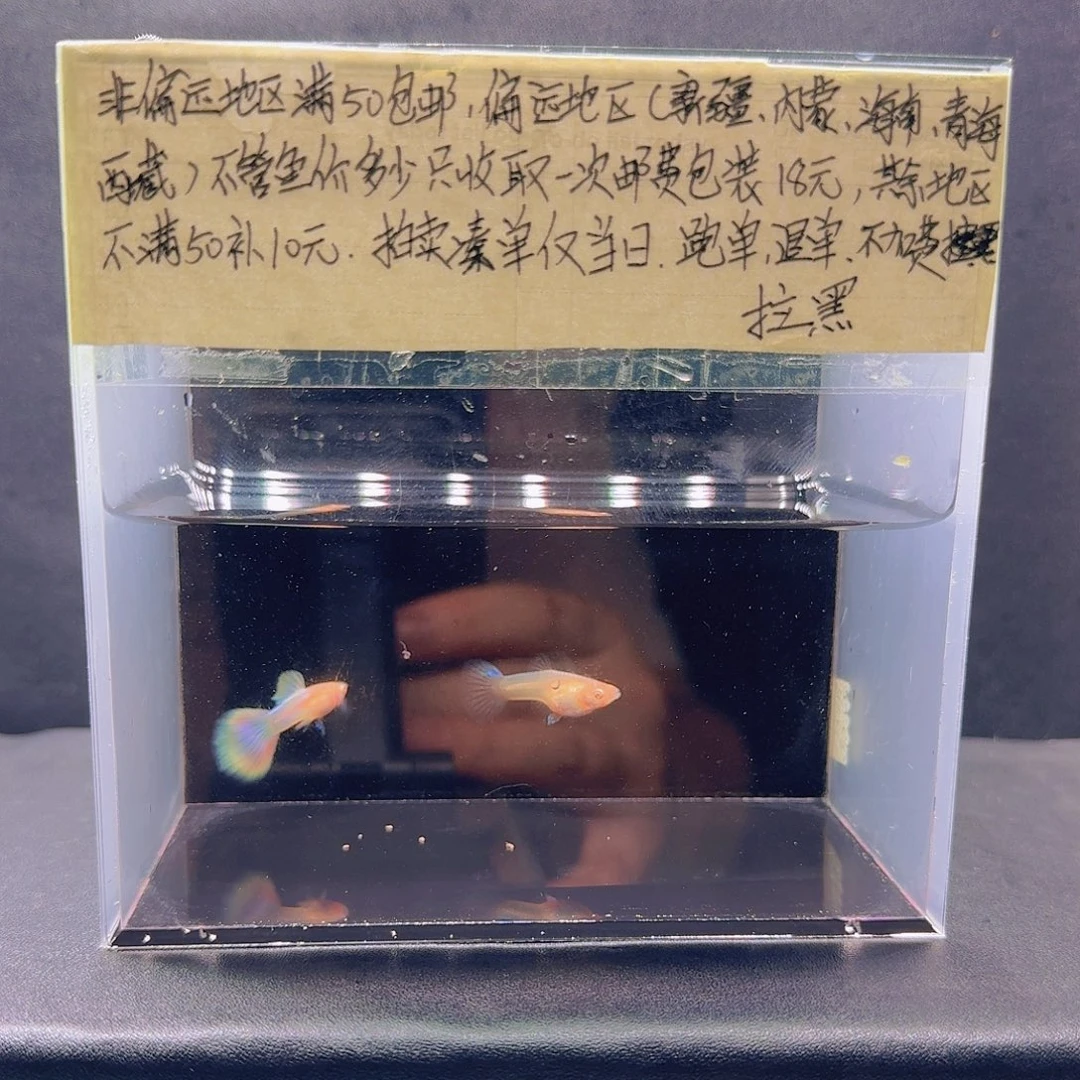 非偏远地区满50包邮,偏远地区(新疆、内蒙、海南、青海
西藏)不管鱼价多少只收取一次邮费包装18元,其余地区
不满50补10元.拍卖凑单仅当日.跑单,退单.不加价
拉黑